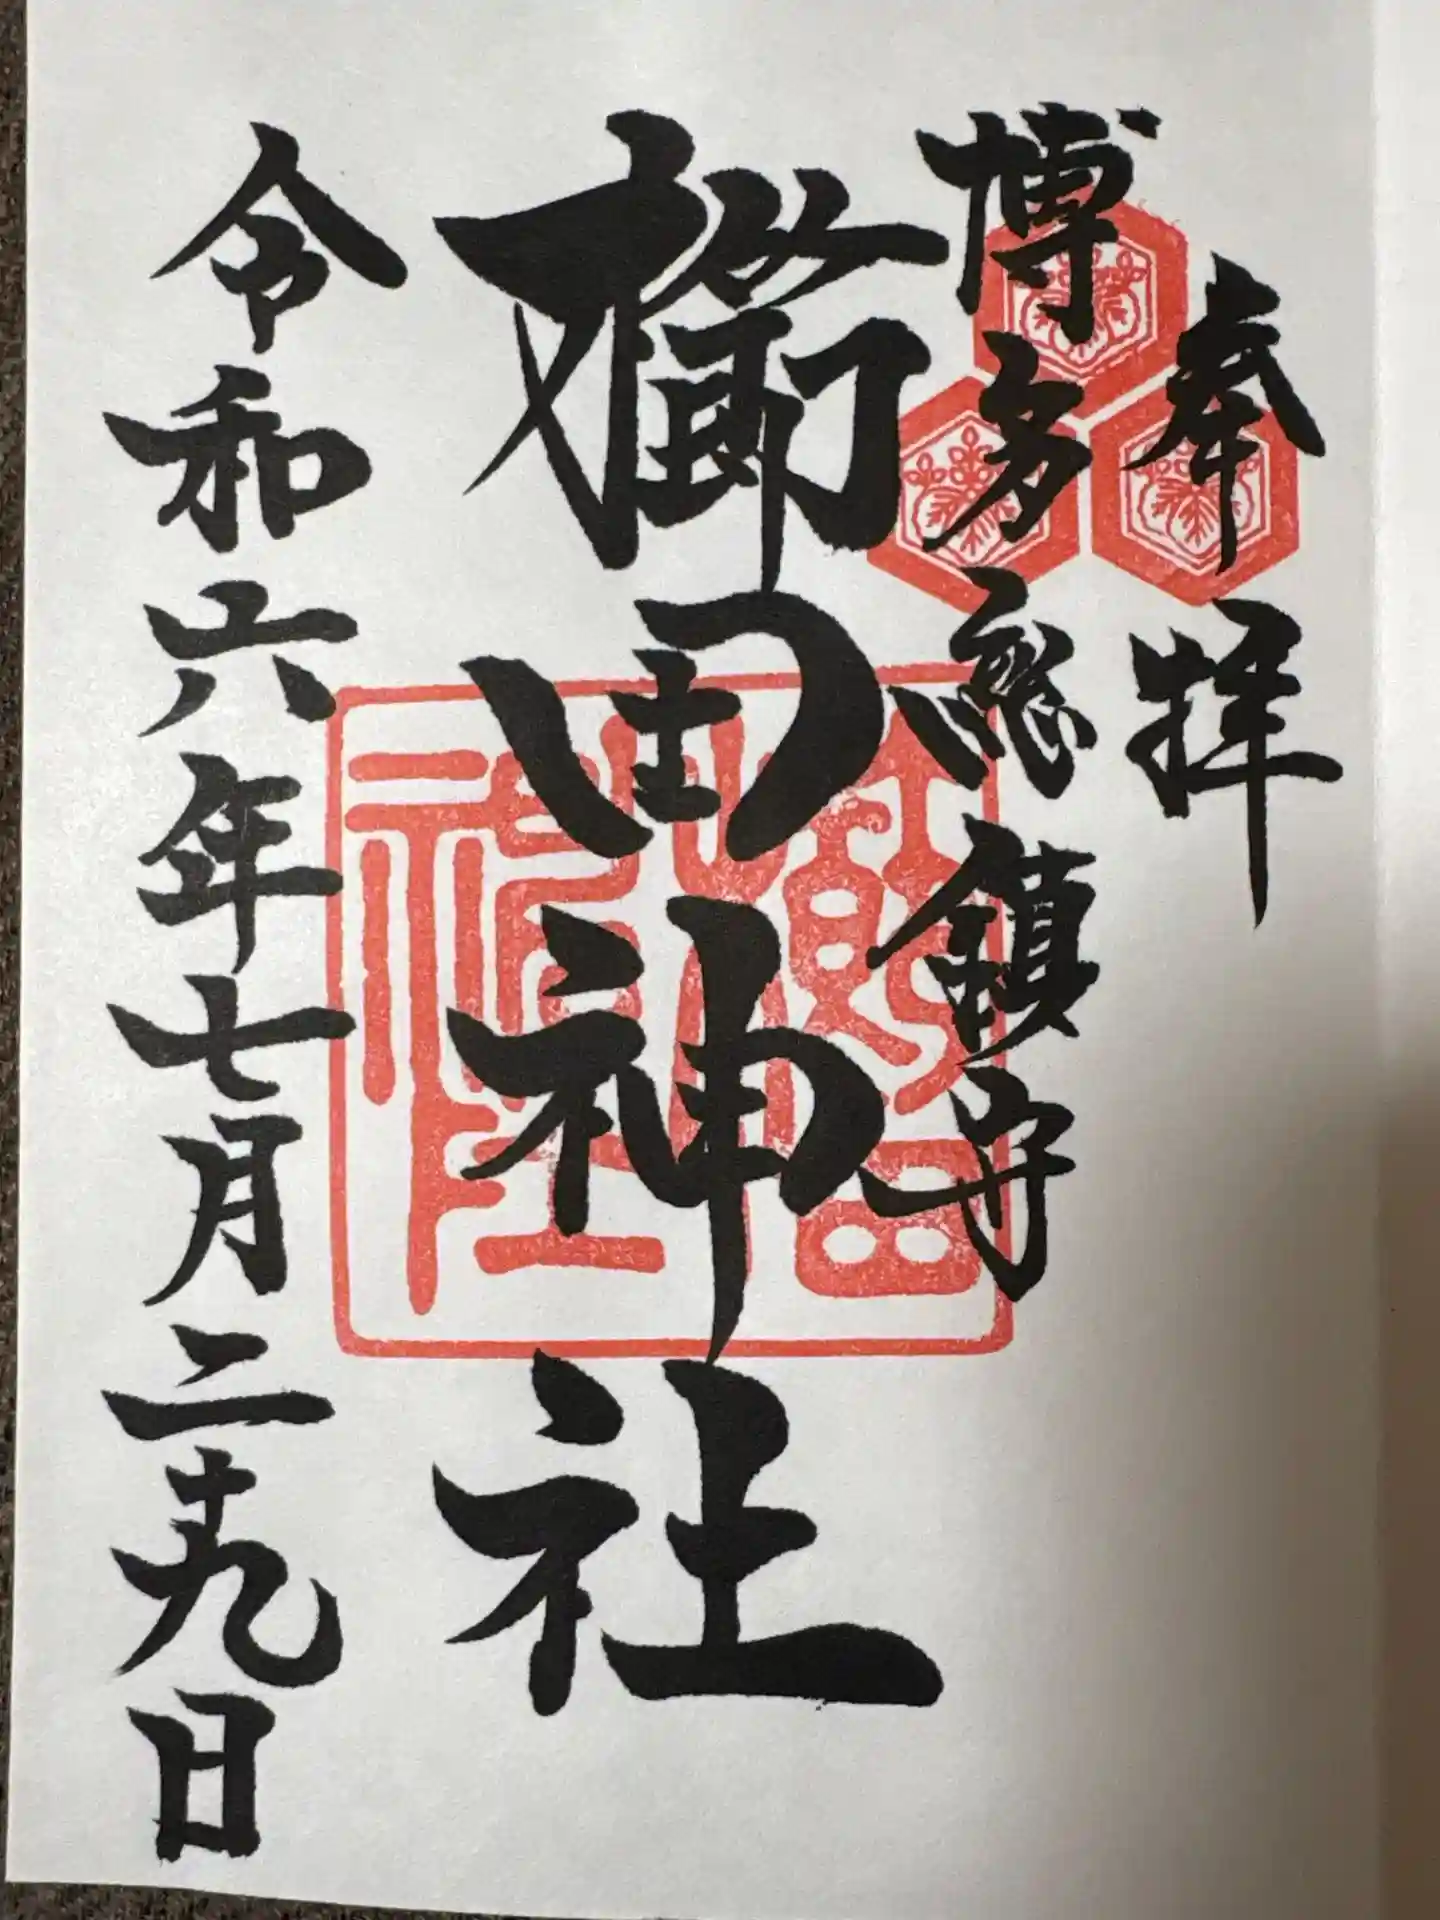 奉拝
博多總鎮守
櫛田神社
令和六年七月二十九日
櫛田神社